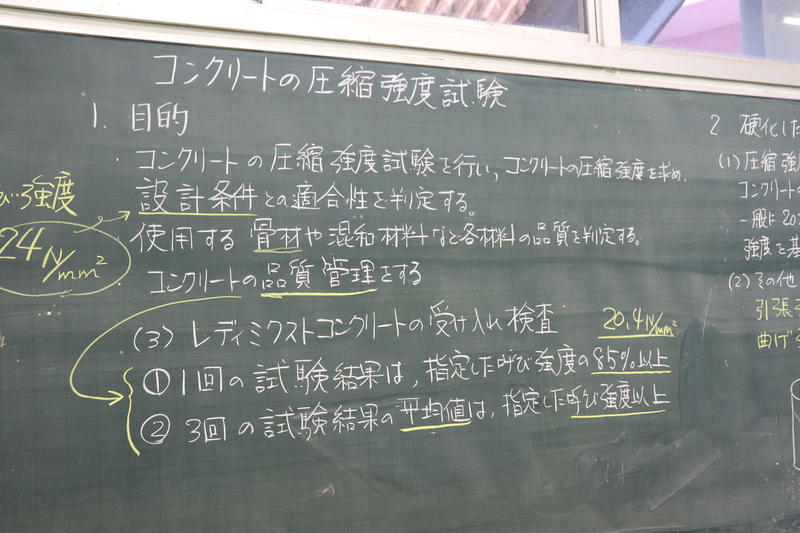 コンクリートの圧縮強度試験
1. 目的
・コンクリートの圧縮強度試験を行い、コンクリートの圧縮強度を求め、
設計条件との適合性を判定する。
使用する骨材や混和材料など各材料の品質を判定する。
コンクリートの品質管理をする
(3) レディミクストコンクリートの受け入れ検査
20.4N/mm²
① 1回の試験結果は、指定した呼び強度の85%以上
② 3回の試験結果の平均値は、指定した呼び強度以上
強度
24N/mm²
2 硬化した
(1) 圧縮強
コンクリートの
一般に20
強度を基
(2) その他
引張
曲げ